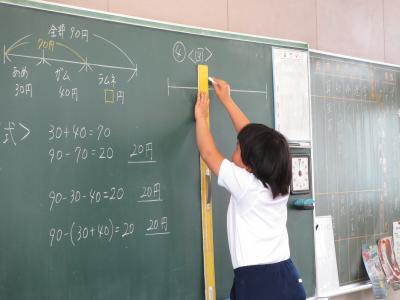 全部 90円
70円
あめ ガム ラムネ
30円 40円 □円
式>
30+40=70
90-70=20 20円
90-30-40=20 20円
90-(30+40)=20 20円
④ <図>